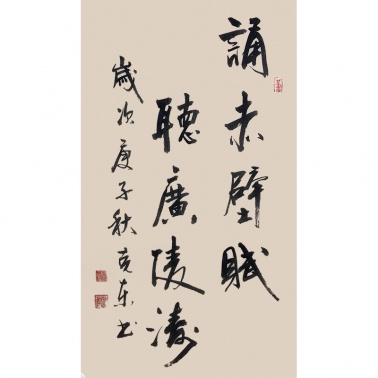 誦赤壁賦
聽廣陵濤
歲次庚子秋克東书